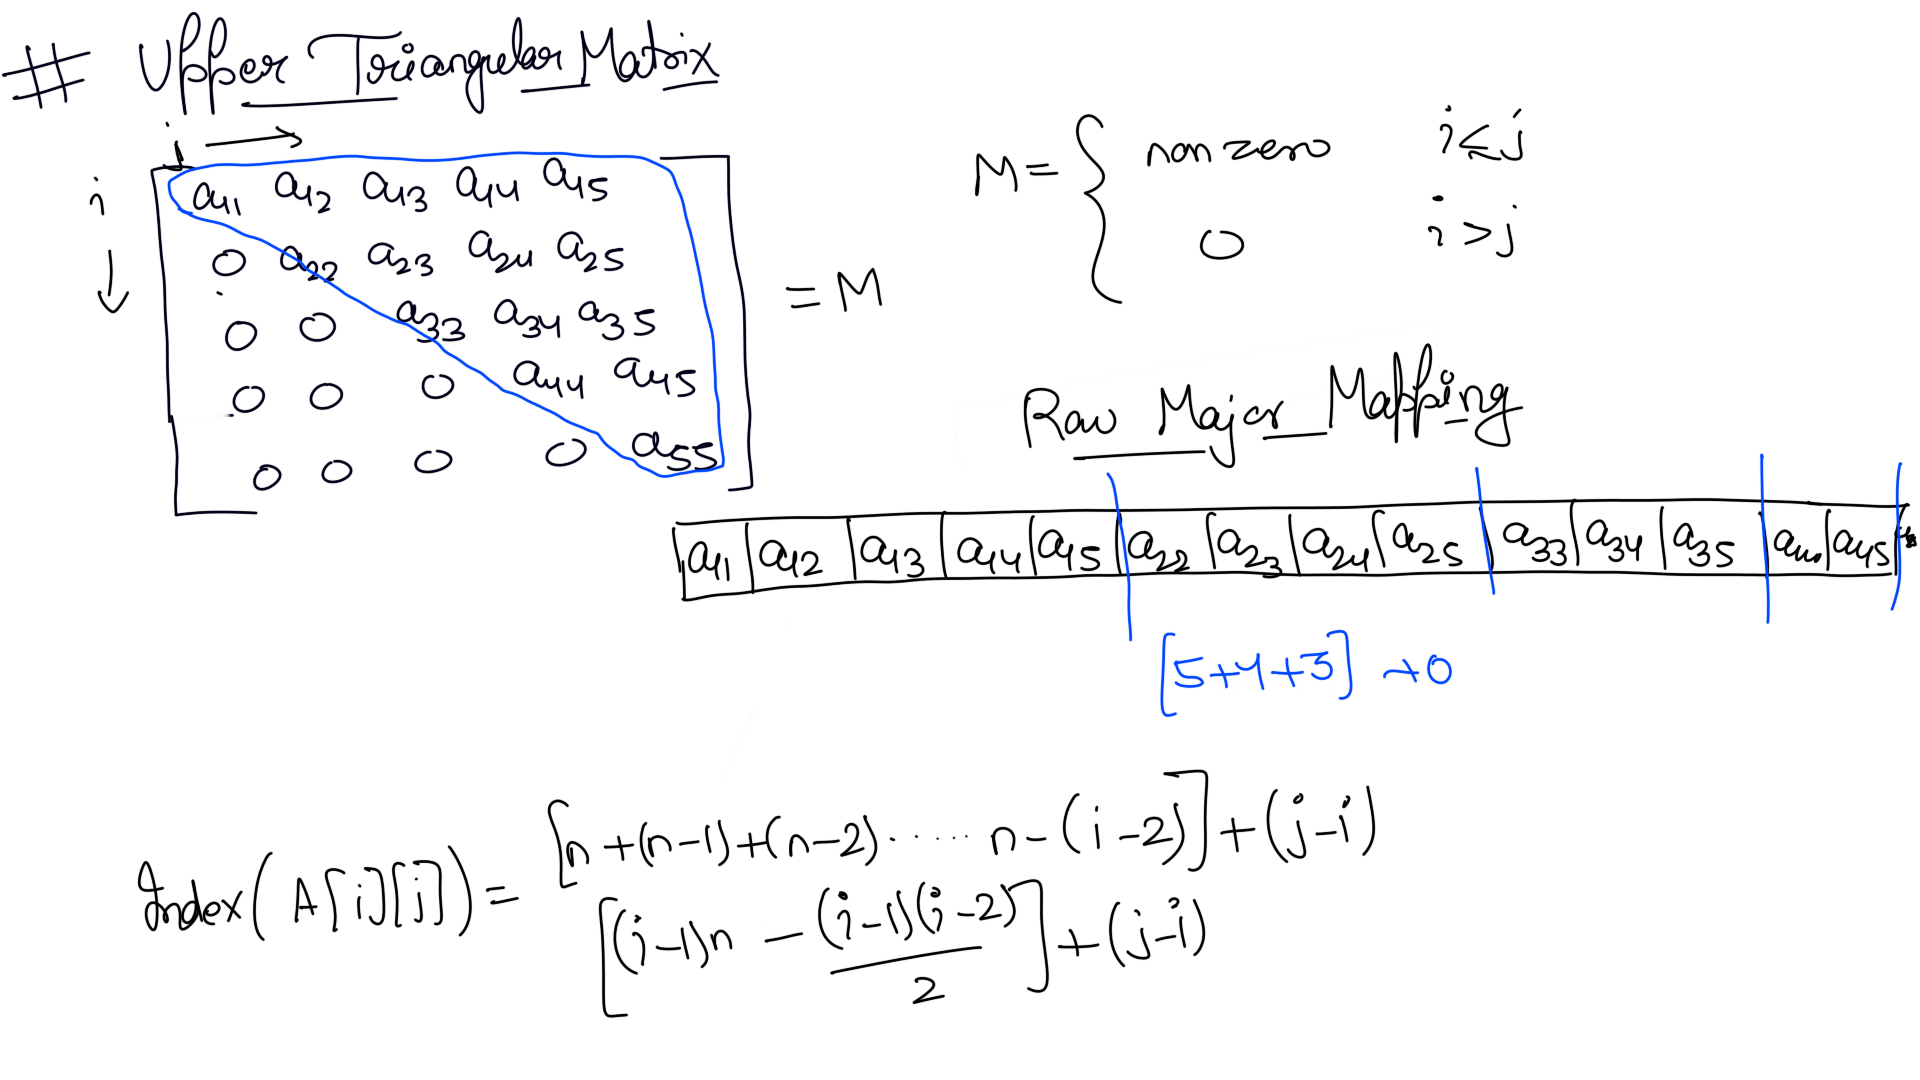 # Upper Triangular Matrix
j →
i ↓
a11 a12 a13 a14 a15
0 a22 a23 a24 a25
0 0 a33 a34 a35
0 0 0 a44 a45
0 0 0 0 a55
= M
M = { non zero i ≤ j
0 i > j
Row Major Mapping
a11 a12 a13 a14 a15 a22 a23 a24 a25 a33 a34 a35 a44 a45
[5+4+3] +0
Index(A[i][j]) = [n +(n-1)+(n-2)······ n-(i-2)]+(j-i)
[(i-1)n - (i-1)(i-2)/2]+(j-i)